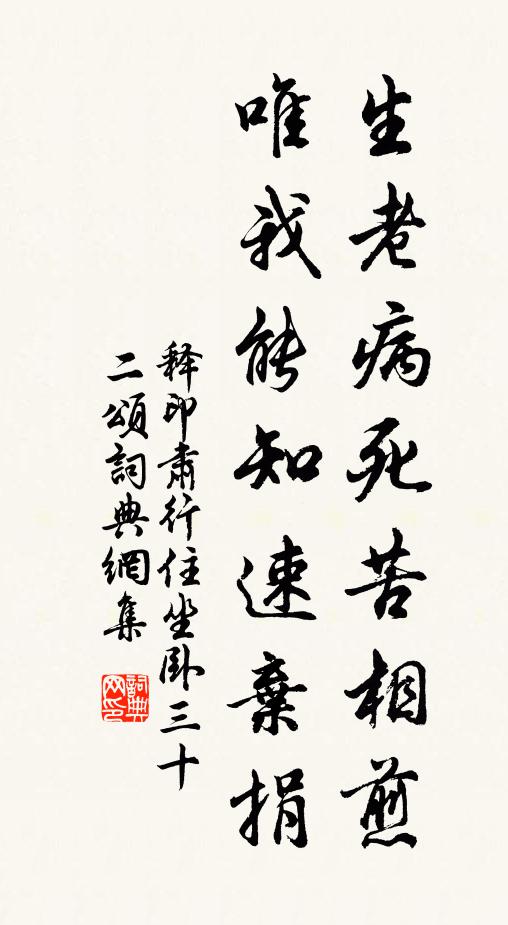 生老病死苦相煎
唯我能知速棄捐
释印肃行住坐卧三十
二頌詞典網集
詞典
网印